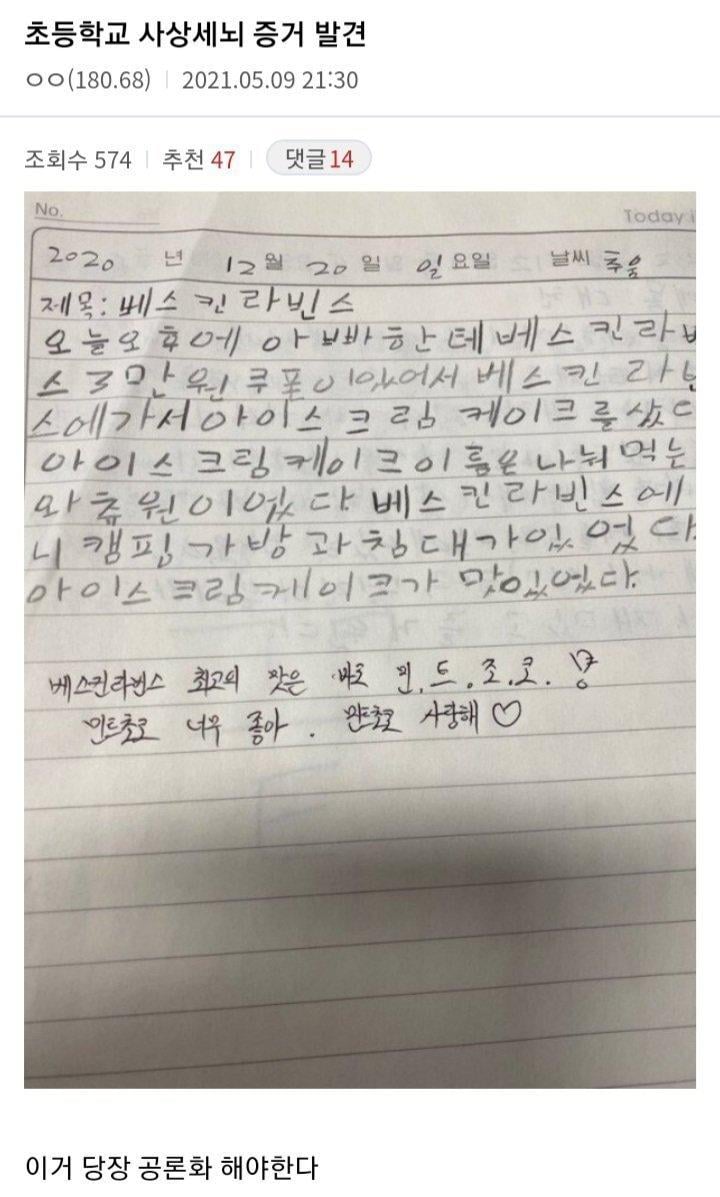 초등학교 사상세뇌 증거 발견
ㅇㅇ(180.68) 2021.05.09 21:30
조회수 574 추천 47 댓글 14
No. Today i
2020 년 12월 20일 일요일 날씨 추움
제목: 베스킨라빈스
오늘오후에 아빠한테베스킨라
스3만원쿠폰이있어서 베스킨라
스에가서아이스크림 케이크를샀
아이스크림케이크이름은나눠먹는
와츄원이었다. 베스킨라빈스에
니캠핑가방과침대가있었다.
아이스크림케이크가 맛있었다.
베스킨라빈스 최고의 맛은 바로 민.트.초.코.
민트초코 너무 좋아. 민트초코 사랑해♡
이거 당장 공론화 해야한다